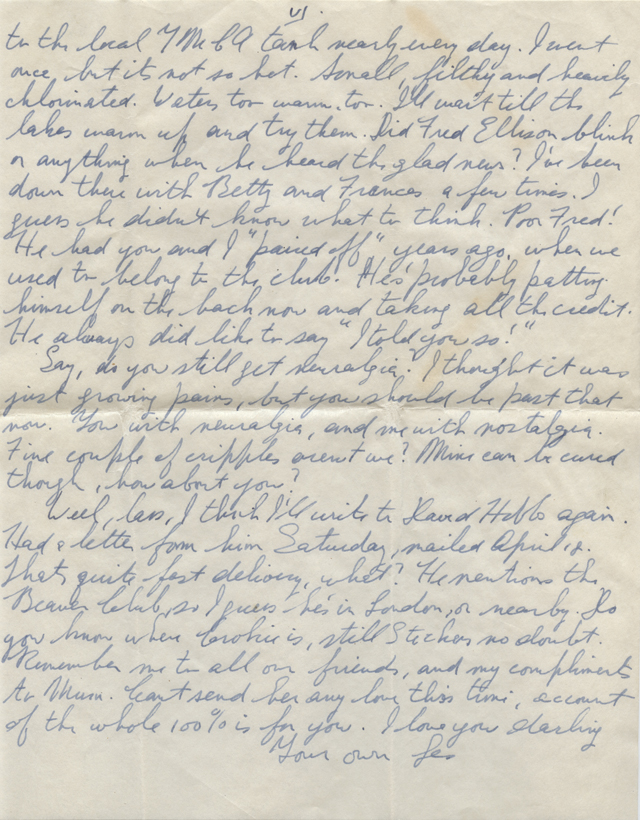 VI
to the local YMCA tank nearly every day. I went
once, but it's not so hot. Small, filthy and heavily
chlorinated. Water's too warm, too. I'll wait till the
lakes warm up and try them. Did Fred Ellison blink
or anything when he heard the glad news? I've been
down there with Betty and Frances a few times. I
guess he didn't know what to think. Poor Fred!
He had you and I "paired off" years ago, when we
used to belong to the club. He's probably patting
himself on the back now and taking all the credit.
He always did like to say "I told you so!"
Say, do you still get neuralgia? I thought it was
just growing pains, but you should be past that
now. You with neuralgia, and me with nostalgia.
Fine couple of cripples aren't we? Mine can be cured
though, how about you?
Well, lass, I think I'll write to David Hibbs again.
Had a letter from him Saturday, mailed April 12.
That's quite fast delivery, what? He mentions the
Beaver Club, so I guess he's in London, or nearby. Do
you know where Crokie is, still no doubt.
Remember me to all our friends, and my compliments
to Mum. Can't send her any love this time, account
of the whole 100% is for you. I love you darling
Your own Les